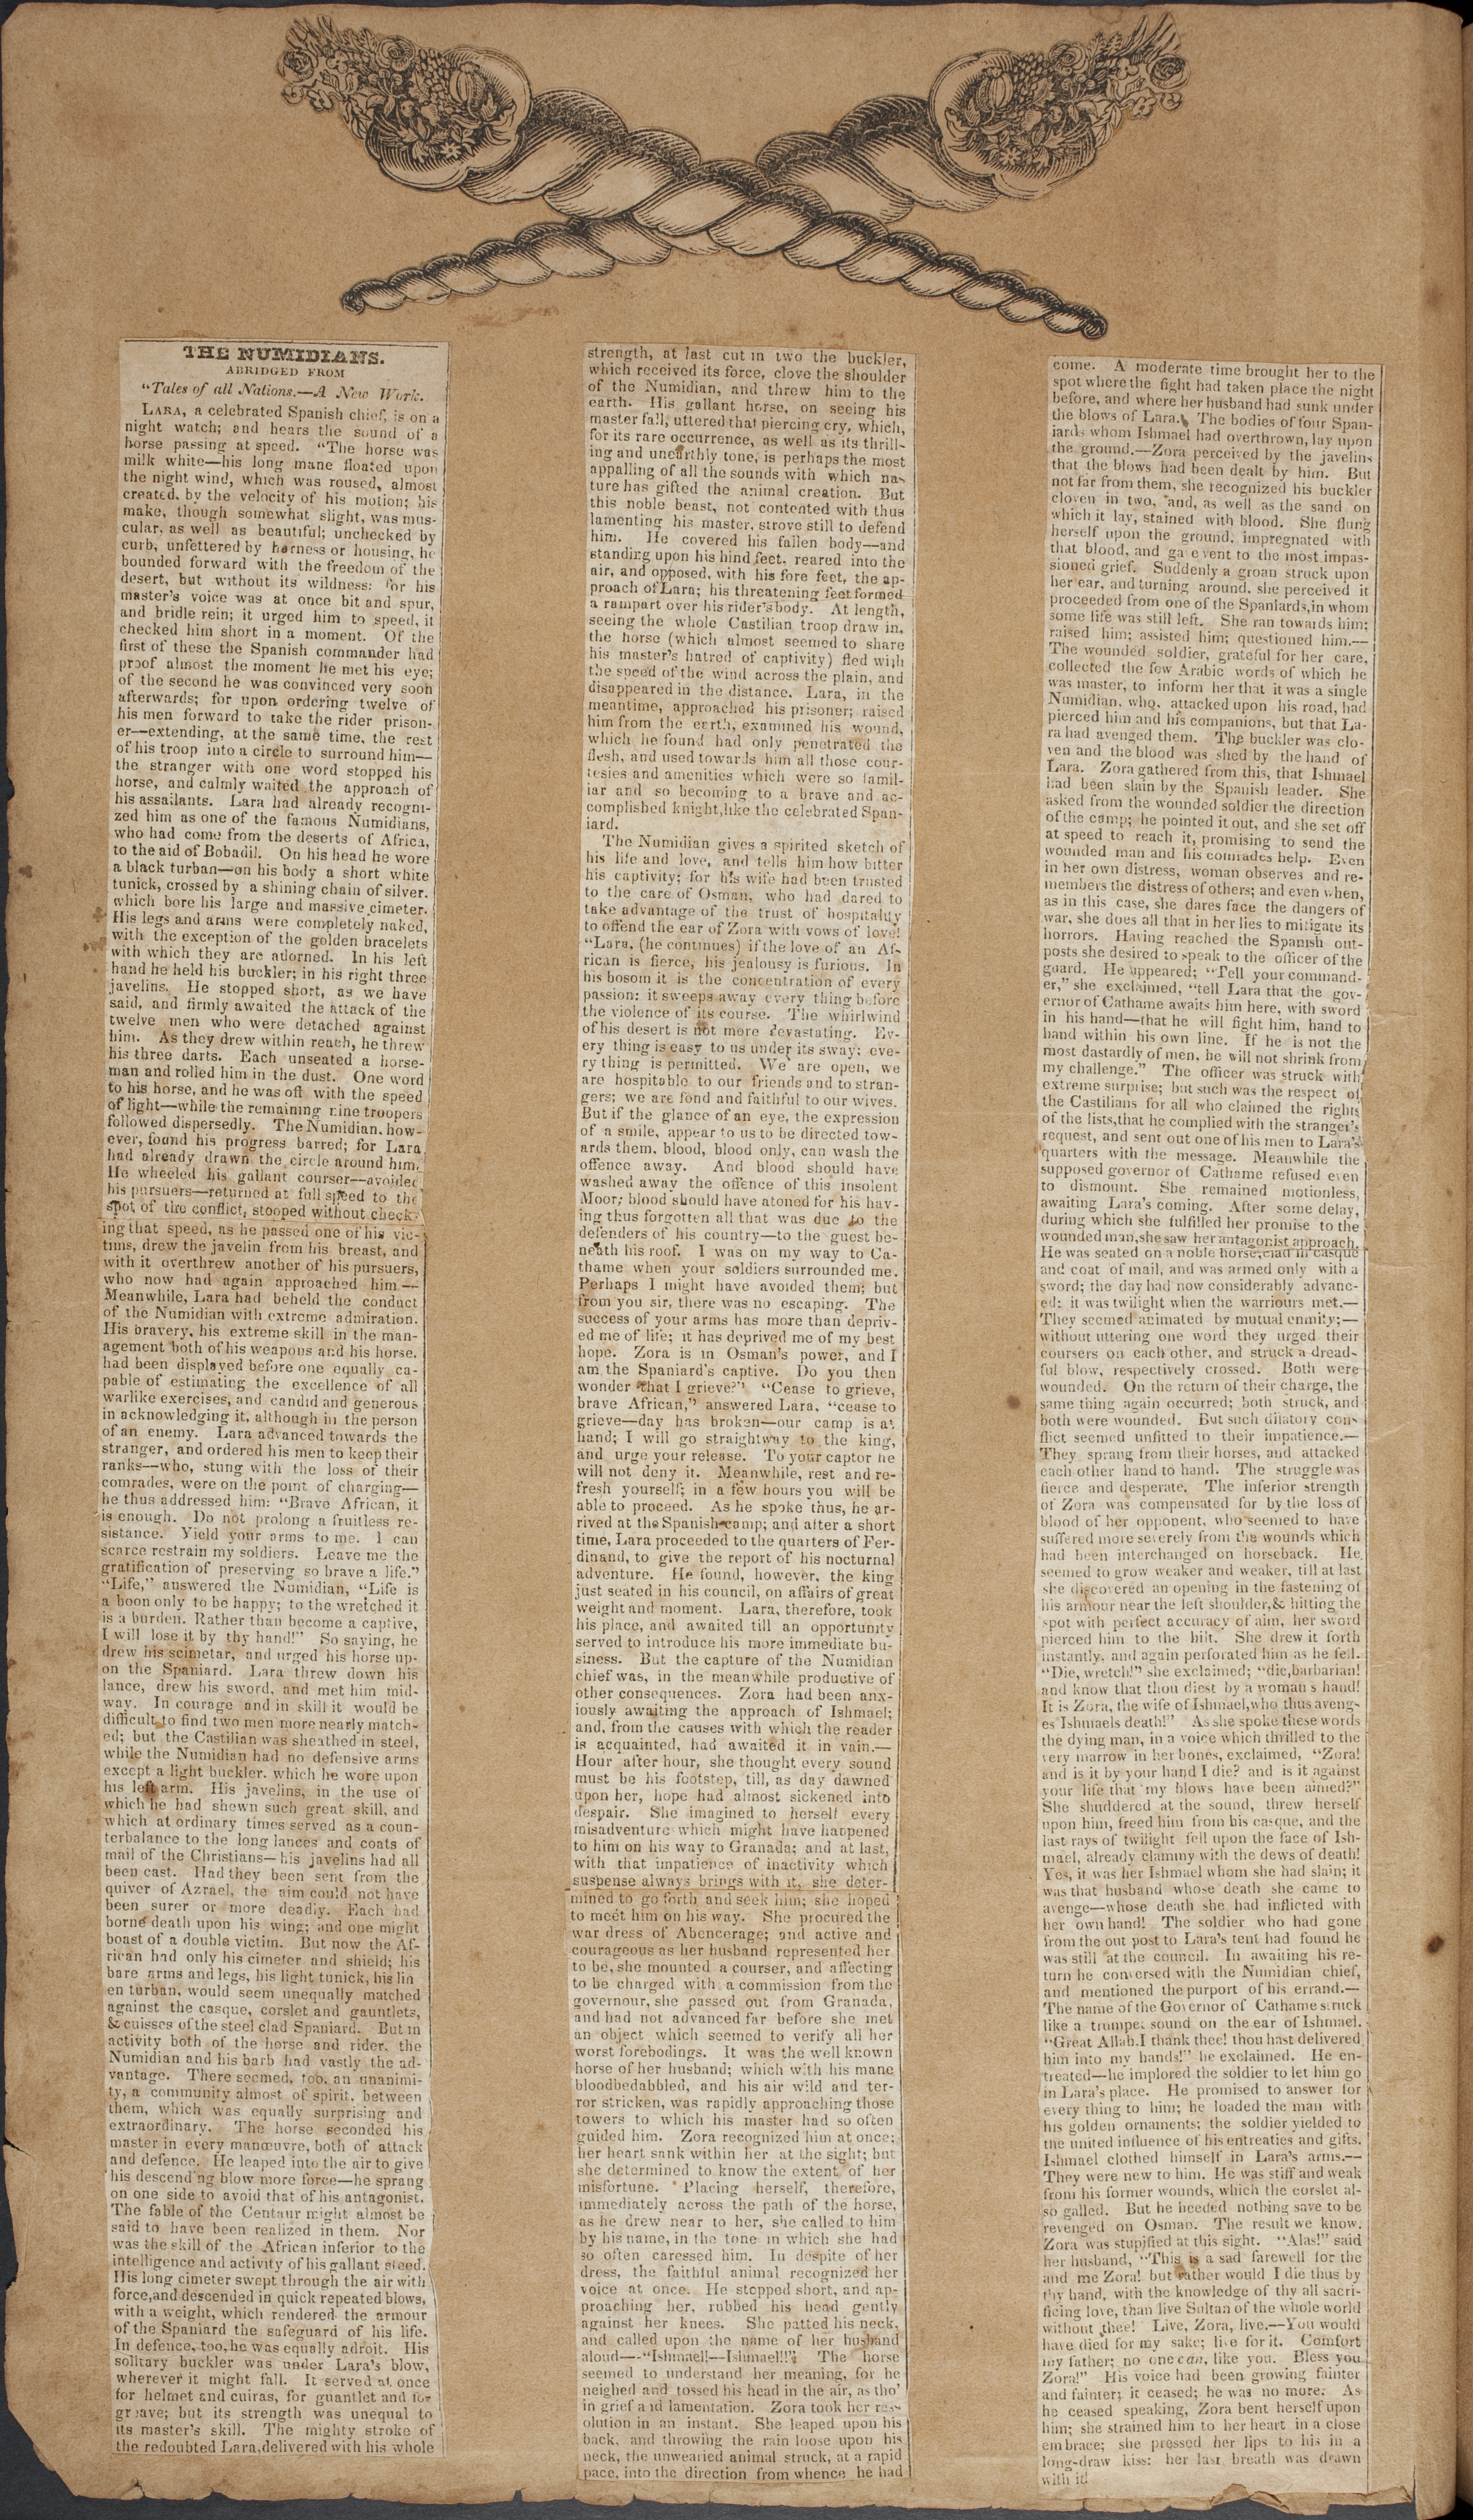 THE NUMIDIANS.
ABRIDGED FROM
"Tales of all Nations.—A New Work.
LARA, a celebrated Spanish chief, is on a
night watch; and hears the sound of a
horse passing at speed. "The horse was
milk white—his long mane floated upon
the night wind, which was roused, almost
created, by the velocity of his motion; his
make, though somewhat slight, was mus-
cular, as well as beautiful; unchecked by
curb, unfettered by harness or housing, he
bounded forward with the freedom of the
desert, but without its wildness: for his
master's voice was at once bit and spur,
and bridle rein; it urged him to speed, it
checked him short in a moment. Of the
first of these the Spanish commander had
proof almost the moment he met his eye;
of the second he was convinced very soon
afterwards; for upon ordering twelve of
his men forward to take the rider prison-
er—extending, at the same time, the rest
of his troop into a circle to surround him—
the stranger with one word stopped his
horse, and calmly waited the approach of
his assailants. Lara had already recogni-
zed him as one of the famous Numidians,
who had come from the deserts of Africa,
to the aid of Bobadil. On his head he wore
a black turban—on his body a short white
tunick, crossed by a shining chain of silver.
which bore his large and massive cimeter.
His legs and arms were completely naked,
with the exception of the golden bracelets
with which they are adorned. In his left
hand he held his buckler; in his right three
javelins. He stopped short, as we have
said, and firmly awaited the attack of the
twelve men who were detached against
him. As they drew within reach, he threw
his three darts. Each unseated a horse-
man and rolled him in the dust. One word
to his horse, and he was off with the speed
of light—while the remaining nine troopers
followed dispersedly. The Numidian, how-
ever, found his progress barred; for Lara
had already drawn the circle around him.
He wheeled his gallant courser—avoided
his pursuers—returned at full speed to the
spot of the conflict, stooped without check-
ing that speed, as he passed one of his vic-
tims, drew the javelin from his breast, and
with it overthrew another of his pursuers,
who now had again approached him.—
Meanwhile, Lara had beheld the conduct
of the Numidian with extreme admiration.
His bravery, his extreme skill in the man-
agement both of his weapons and his horse,
had been displayed before one equally ca-
pable of estimating the excellence of all
warlike exercises, and candid and generous
in acknowledging it, although in the person
of an enemy. Lara advanced towards the
stranger, and ordered his men to keep their
ranks—who, stung with the loss of their
comrades, were on the point of charging—
he thus addressed him: "Brave African, it
is enough. Do not prolong a fruitless re-
sistance. Yield your arms to me. I can
scarce restrain my soldiers. Leave me the
gratification of preserving so brave a life."
"Life," answered the Numidian, "Life is
a boon only to be happy; to the wretched it
is a burden. Rather than become a captive,
I will lose it by thy hand!" So saying, he
drew his scimetar, and urged his horse up-
on the Spaniard. Lara threw down his
lance, drew his sword, and met him mid-
way. In courage and in skill it would be
difficult to find two men more nearly match-
ed; but the Castilian was sheathed in steel,
while the Numidian had no defensive arms
except a light buckler, which he wore upon
his left arm. His javelins, in the use of
which he had shewn such great skill, and
which at ordinary times served as a coun-
terbalance to the long lances and coats of
mail of the Christians—his javelins had all
been cast. Had they been sent from the
quiver of Azrael, the aim could not have
been surer or more deadly. Each had
borne death upon his wing; and one might
boast of a double victim. But now the Af-
rican had only his cimeter and shield; his
bare arms and legs, his light tunick, his lin
en turban, would seem unequally matched
against the casque, corslet and gauntlets,
& cuisses of the steel clad Spaniard. But in
activity both of the horse and rider, the
Numidian and his barb had vastly the ad-
vantage. There seemed, too, an unanimi-
ty, a community almost of spirit, between
them, which was equally surprising and
extraordinary. The horse seconded his
master in every manœuvre, both of attack
and defence. He leaped into the air to give
his descending blow more force—he sprang
on one side to avoid that of his antagonist.
The fable of the Centaur might almost be
said to have been realized in them. Nor
was the skill of the African inferior to the
intelligence and activity of his gallant steed.
His long cimeter swept through the air with
force, and descended in quick repeated blows,
with a weight, which rendered the armour
of the Spaniard the safeguard of his life.
In defence, too, he was equally adroit. His
solitary buckler was under Lara's blow,
wherever it might fall. It served at once
for helmet and cuiras, for guantlet and for
greave; but its strength was unequal to
its master's skill. The mighty stroke of
the redoubted Lara, delivered with his whole
strength, at last cut in two the buckler,
which received its force, clove the shoulder
of the Numidian, and threw him to the
earth. His gallant horse, on seeing his
master fall, uttered that piercing cry, which,
for its rare occurrence, as well as its thrill-
ing and unearthly tone, is perhaps the most
appalling of all the sounds with which na-
ture has gifted the animal creation. But
this noble beast, not contented with thus
lamenting his master, strove still to defend
him. He covered his fallen body—and
standing upon his hind feet, reared into the
air, and opposed, with his fore feet, the ap-
proach of Lara; his threatening feet formed
a rampart over his rider's body. At length,
seeing the whole Castilian troop draw in,
the horse (which almost seemed to share
his master's hatred of captivity) fled with
the speed of the wind across the plain, and
disappeared in the distance. Lara, in the
meantime, approached his prisoner; raised
him from the earth, examined his wound,
which he found had only penetrated the
flesh, and used towards him all those cour-
tesies and amenities which were so famil-
iar and so becoming to a brave and ac-
complished knight, like the celebrated Span-
iard.
The Numidian gives a spirited sketch of
his life and love, and tells him how bitter
his captivity; for his wife had been trusted
to the care of Osman, who had dared to
take advantage of the trust of hospitality
to offend the ear of Zora with vows of love!
"Lara, (he continues) if the love of an Af-
rican is fierce, his jealousy is furious. In
his bosom it is the concentration of every
passion: it sweeps away every thing before
the violence of its course. The whirlwind
of his desert is not more devastating. Ev-
ery thing is easy to us under its sway; eve-
ry thing is permitted. We are open, we
are hospitable to our friends and to stran-
gers; we are fond and faithful to our wives.
But if the glance of an eye, the expression
of a smile, appear to us to be directed tow-
ards them, blood, blood only, can wash the
offence away. And blood should have
washed away the offence of this insolent
Moor; blood should have atoned for his hav-
ing thus forgotten all that was due to the
defenders of his country—to the guest be-
neath his roof. I was on my way to Ca-
thame when your soldiers surrounded me.
Perhaps I might have avoided them; but
from you sir, there was no escaping. The
success of your arms has more than depriv-
ed me of life; it has deprived me of my best
hope. Zora is in Osman's power, and I
am the Spaniard's captive. Do you then
wonder that I grieve?" "Cease to grieve,
brave African," answered Lara, "cease to
grieve—day has broken—our camp is at
hand; I will go straightway to the king,
and urge your release. To your captor he
will not deny it. Meanwhile, rest and re-
fresh yourself; in a few hours you will be
able to proceed. As he spoke thus, he ar-
rived at the Spanish camp; and after a short
time, Lara proceeded to the quarters of Fer-
dinand, to give the report of his nocturnal
adventure. He found, however, the king
just seated in his council, on affairs of great
weight and moment. Lara, therefore, took
his place, and awaited till an opportunity
served to introduce his more immediate bu-
siness. But the capture of the Numidian
chief was, in the meanwhile productive of
other consequences. Zora had been anx-
iously awaiting the approach of Ishmael;
and, from the causes with which the reader
is acquainted, had awaited it in vain.—
Hour after hour, she thought every sound
must be his footstep, till, as day dawned
upon her, hope had almost sickened into
despair. She imagined to herself every
misadventure which might have happened
to him on his way to Granada; and at last,
with that impatience of inactivity which
suspense always brings with it, she deter-
mined to go forth and seek him; she hoped
to meet him on his way. She procured the
war dress of Abencerage; and active and
courageous as her husband represented her
to be, she mounted a courser, and affecting
to be charged with a commission from the
governour, she passed out from Granada,
and had not advanced far before she met
an object which seemed to verify all her
worst forebodings. It was the well known
horse of her husband; which with his mane
bloodbedabbled, and his air wild and ter-
ror stricken, was rapidly approaching those
towers to which his master had so often
guided him. Zora recognized him at once;
her heart sank within her at the sight; but
she determined to know the extent of her
misfortune. Placing herself, therefore,
immediately across the path of the horse,
as he drew near to her, she called to him
by his name, in the tone in which she had
so often caressed him. In despite of her
dress, the faithful animal recognized her
voice at once. He stopped short, and ap-
proaching her, rubbed his head gently
against her knees. She patted his neck,
and called upon the name of her husband
aloud—"Ishmael!—Ishmael!" The horse
seemed to understand her meaning, for he
neighed and tossed his head in the air, as tho'
in grief and lamentation. Zora took her res-
olution in an instant. She leaped upon his
back, and throwing the rain loose upon his
neck, the unwearied animal struck, at a rapid
pace, into the direction from whence he had
come. A moderate time brought her to the
spot where the fight had taken place the night
before, and where her husband had sunk under
the blows of Lara. The bodies of four Span-
iards whom Ishmael had overthrown, lay upon
the ground.—Zora perceived by the javelins
that the blows had been dealt by him. But
not far from them, she recognized his buckler
cloven in two, and, as well as the sand on
which it lay, stained with blood. She flung
herself upon the ground, impregnated with
that blood, and gave vent to the most impas-
sioned grief. Suddenly a groan struck upon
her ear, and turning around, she perceived it
proceeded from one of the Spaniards, in whom
some life was still left. She ran towards him;
raised him; assisted him; questioned him.—
The wounded soldier, grateful for her care,
collected the few Arabic words of which he
was master, to inform her that it was a single
Numidian, who, attacked upon his road, had
pierced him and his companions, but that La-
ra had avenged them. The buckler was clo-
ven and the blood was shed by the hand of
Lara. Zora gathered from this, that Ishmael
had been slain by the Spanish leader. She
asked from the wounded soldier the direction
of the camp; he pointed it out, and she set off
at speed to reach it, promising to send the
wounded man and his comrades help. Even
in her own distress, woman observes and re-
members the distress of others; and even when,
as in this case, she dares face the dangers of
war, she does all that in her lies to mitigate its
horrors. Having reached the Spanish out-
posts she desired to speak to the officer of the
guard. He appeared; "Tell your command-
er," she exclaimed, "tell Lara that the gov-
ernor of Cathame awaits him here, with sword
in his hand—that he will fight him, hand to
hand within his own line. If he is not the
most dastardly of men, he will not shrink from
my challenge." The officer was struck with
extreme surprise; but such was the respect of
the Castilians for all who claimed the rights
of the lists, that he complied with the stranger's
request, and sent out one of his men to Lara's
quarters with the message. Meanwhile the
supposed governor of Cathame refused even
to dismount. She remained motionless,
awaiting Lara's coming. After some delay,
during which she fulfilled her promise to the
wounded man, she saw her antagonist approach.
He was seated on a noble horse, clad in casque
and coat of mail, and was armed only with a
sword; the day had now considerably advanc-
ed: it was twilight when the warriours met.—
They seemed animated by mutual enmity;—
without uttering one word they urged their
coursers on each other, and struck a dread-
ful blow, respectively crossed. Both were
wounded. On the return of their charge, the
same thing again occurred; both struck, and
both were wounded. But such dilatory con-
flict seemed unfitted to their impatience.—
They sprang from their horses, and attacked
each other hand to hand. The struggle was
fierce and desperate. The inferior strength
of Zora was compensated for by the loss of
blood of her opponent, who seemed to have
suffered more severely from the wounds which
had been interchanged on horseback. He
seemed to grow weaker and weaker, till at last
she discovered an opening in the fastening of
his armour near the left shoulder, & hitting the
spot with perfect accuracy of aim, her sword
pierced him to the hilt. She drew it forth
instantly, and again perforated him as he fell.
"Die, wretch!" she exclaimed; "die, barbarian!
and know that thou diest by a woman's hand!
It is Zora, the wife of Ishmael, who thus aveng-
es Ishmaels death!" As she spoke these words
the dying man, in a voice which thrilled to the
very marrow in her bones, exclaimed, "Zora!
and is it by your hand I die? and is it against
your life that my blows have been aimed?"
She shuddered at the sound, threw herself
upon him, freed him from his casque, and the
last rays of twilight fell upon the face of Ish-
mael, already clammy with the dews of death!
Yes, it was her Ishmael whom she had slain; it
was that husband whose death she came to
avenge—whose death she had inflicted with
her own hand! The soldier who had gone
from the out post to Lara's tent had found he
was still at the council. In awaiting his re-
turn he conversed with the Numidian chief,
and mentioned the purport of his errand.—
The name of the Governor of Cathame struck
like a trumpet sound on the ear of Ishmael.
"Great Allah, I thank thee! thou hast delivered
him into my hands!" he exclaimed. He en-
treated—he implored the soldier to let him go
in Lara's place. He promised to answer for
every thing to him; he loaded the man with
his golden ornaments; the soldier yielded to
the united influence of his entreaties and gifts.
Ishmael clothed himself in Lara's arms.—
They were new to him. He was stiff and weak
from his former wounds, which the corslet al-
so galled. But he heeded nothing save to be
revenged on Osman. The result we know.
Zora was stupified at this sight. "Alas!" said
her husband, "This is a sad farewell for thee
and me Zora! but rather would I die thus by
thy hand, with the knowledge of thy all sacri-
ficing love, than live Sultan of the whole world
without thee! Live, Zora, live.—You would
have died for my sake; live for it. Comfort
my father; no one can, like you. Bless you
Zora!" His voice had been growing fainter
and fainter; it ceased; he was no more. As
he ceased speaking, Zora bent herself upon
him; she strained him to her heart in a close
embrace; she pressed her lips to his in a
long-draw kiss: her last breath was drawn
with it!